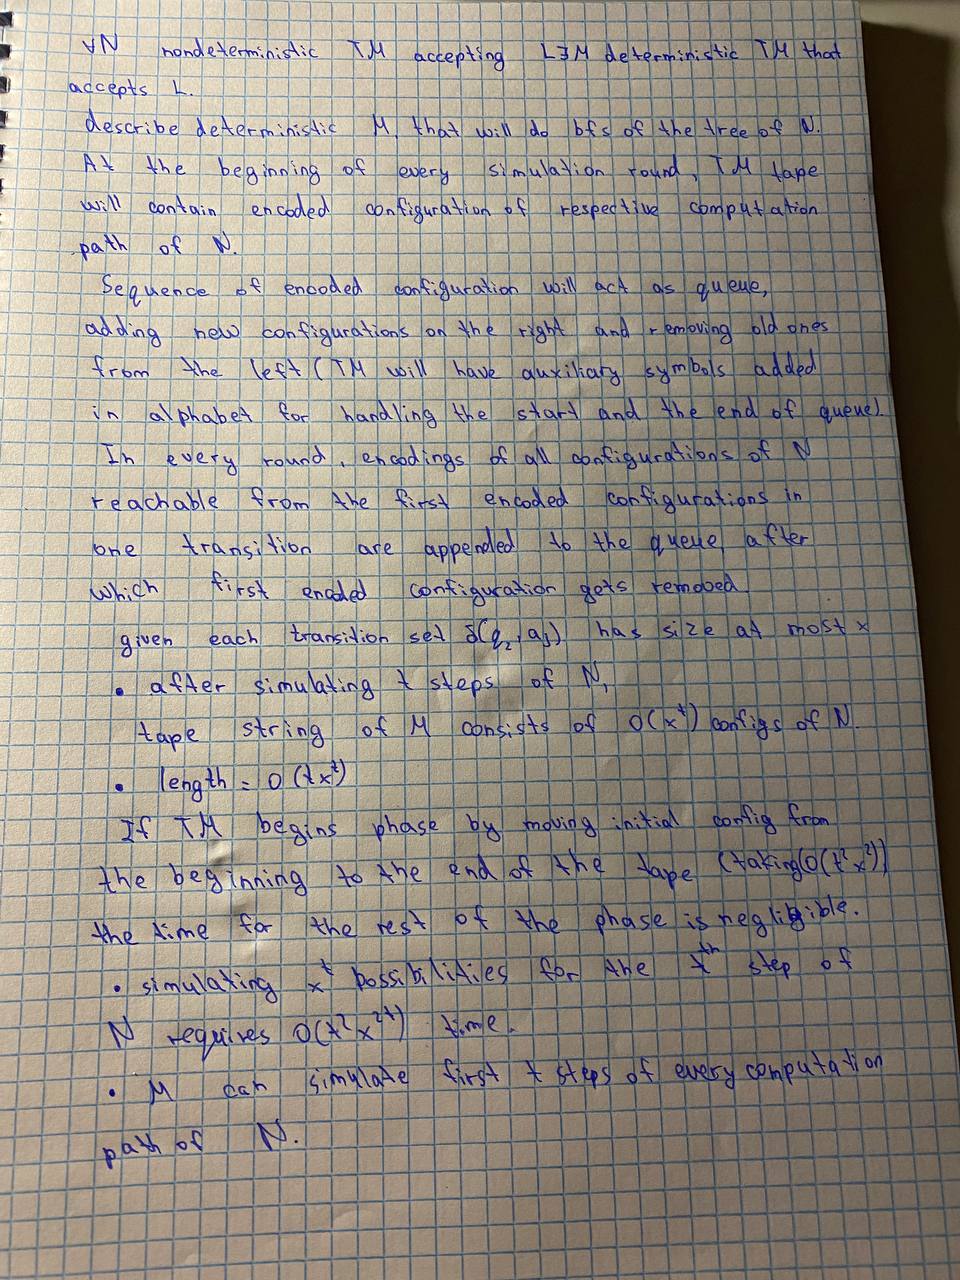 ∀N nondeterministic TM accepting L ∃M deterministic TM that
accepts L.
describe deterministic M, that will do bfs of the tree of N.
At the beginning of every simulation round, TM tape
will contain encoded configuration of respective computation
path of N.
Sequence of encoded configuration will act as queue,
adding new configurations on the right and removing old ones
from the left (TM will have auxiliary symbols added
in alphabet for handling the start and the end of queue).
In every round, encodings of all configurations of N
reachable from the first encoded configurations in
one transition are appended to the queue, after
which first encoded configuration gets removed.
given each transition set δ(q₂, aⱼ) has size at most x
• after simulating t steps of N,
tape string of M consists of O(xᵗ) configs of N.
• length = O(txᵗ)
If TM begins phase by moving initial config from
the beginning to the end of the tape (taking(O(t²x²))
the time for the rest of the phase is negligible.
• simulating xᵗ possibilities for the tᵗʰ step of
N requires O(t²x²ᵗ) time.
• M can simulate first t steps of every computation
path of N.